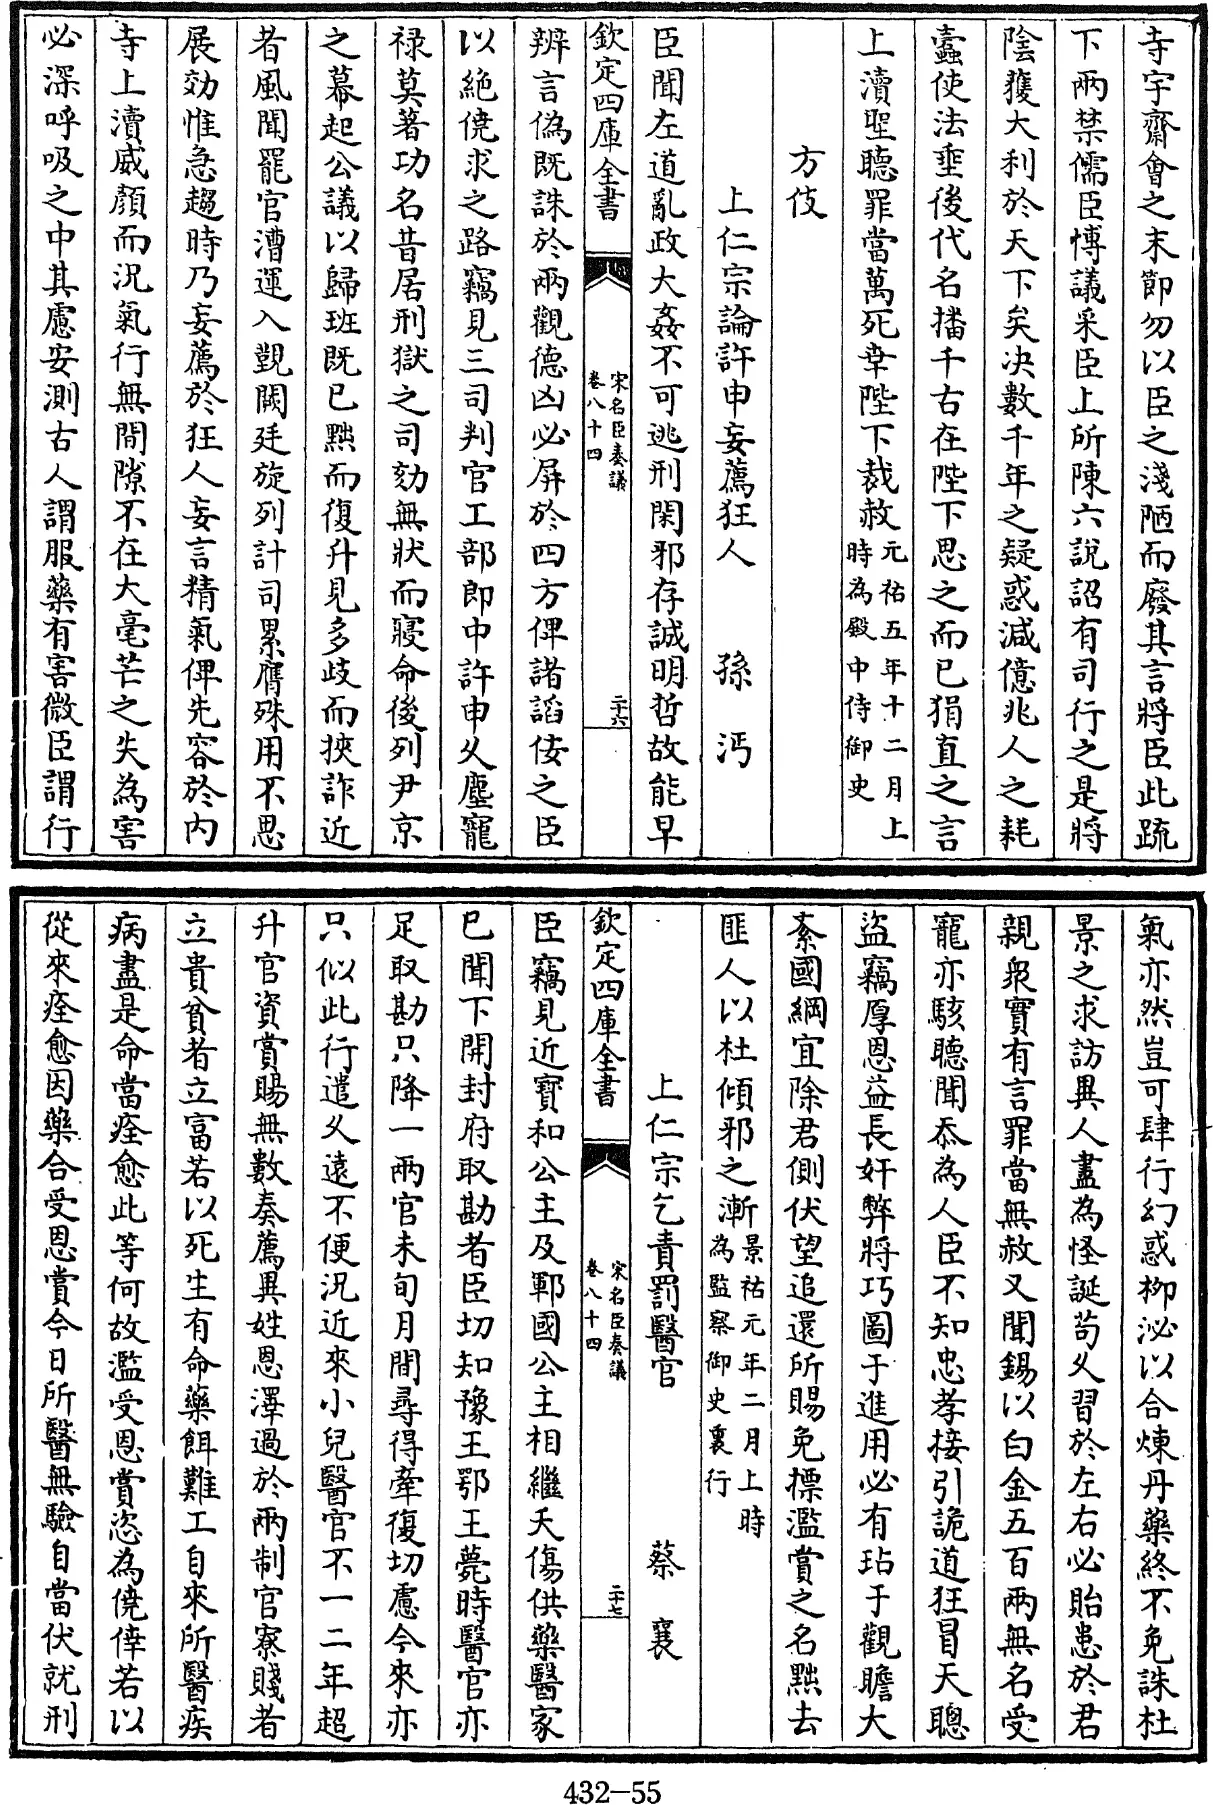 寺宇齋會之末節勿以臣之淺陋而廢其言將臣此疏
下兩禁儒臣博議采臣上所陳六説詔有司行之是將
陰獲大利於天下矣决數千年之疑惑減億兆人之耗
蠧使法垂後代名播千古在陛下思之而已狷直之言
上瀆聖聽罪當萬死幸陛下裁赦元祐五年十二月上時為殿中侍御史
方伎
上仁宗論許申妄薦狂人 孫沔
臣聞左道亂政大姦不可逃刑閑邪存誠明哲故能早
欽定四庫全書 宋名臣奏議 卷八十四 二十六
辨言偽既誅於兩觀德凶必屏於四方俾諸謟佞之臣
以絶僥求之路竊見三司判官工部郎中許申乆塵寵
禄莫著功名昔居刑獄之司劾無狀而寢命後列尹京
之幕起公議以歸班既已黜而復升見多歧而挾詐近
者風聞罷官漕運入覲闕廷旋列計司累膺殊用不思
展効惟急趨時乃妄薦於狂人妄言精氣俾先容於内
寺上瀆威顔而况氣行無間隙不在大毫芒之失為害
必深呼吸之中其慮安測古人謂服藥有害微臣謂行
氣亦然豈可肆行幻惑柳泌以合煉丹藥終不免誅杜
景之求訪異人盡為怪誕苟乆習於左右必貽患於君
親衆實有言罪當無赦又聞錫以白金五百兩無名受
寵亦駭聽聞忝為人臣不知忠孝接引詭道狂冒天聰
盜竊厚恩益長奸弊將巧圖于進用必有玷于觀瞻大
紊國綱宜除君側伏望追還所賜免摽濫賞之名黜去
匪人以杜傾邪之漸景祐元年二月上時為監察御史裏行
上仁宗乞責罰醫官 蔡襄
欽定四庫全書 宋名臣奏議 卷八十四 二十七
臣竊見近寶和公主及鄆國公主相繼夭傷供藥醫家
已聞下開封府取勘者臣切知豫王鄂王薨時醫官亦
足取勘只降一兩官未旬月間尋得牽復切慮今來亦
只似此行遣乆逺不便况近來小兒醫官不一二年超
升官資賞賜無數奏薦異姓恩澤過於兩制官寮賤者
立貴貧者立富若以死生有命藥餌難工自來所醫疾
病盡是命當痊愈此等何故濫受恩賞恣為僥倖若以
從來痊愈因藥合受恩賞今日所醫無驗自當伏就刑
432-55